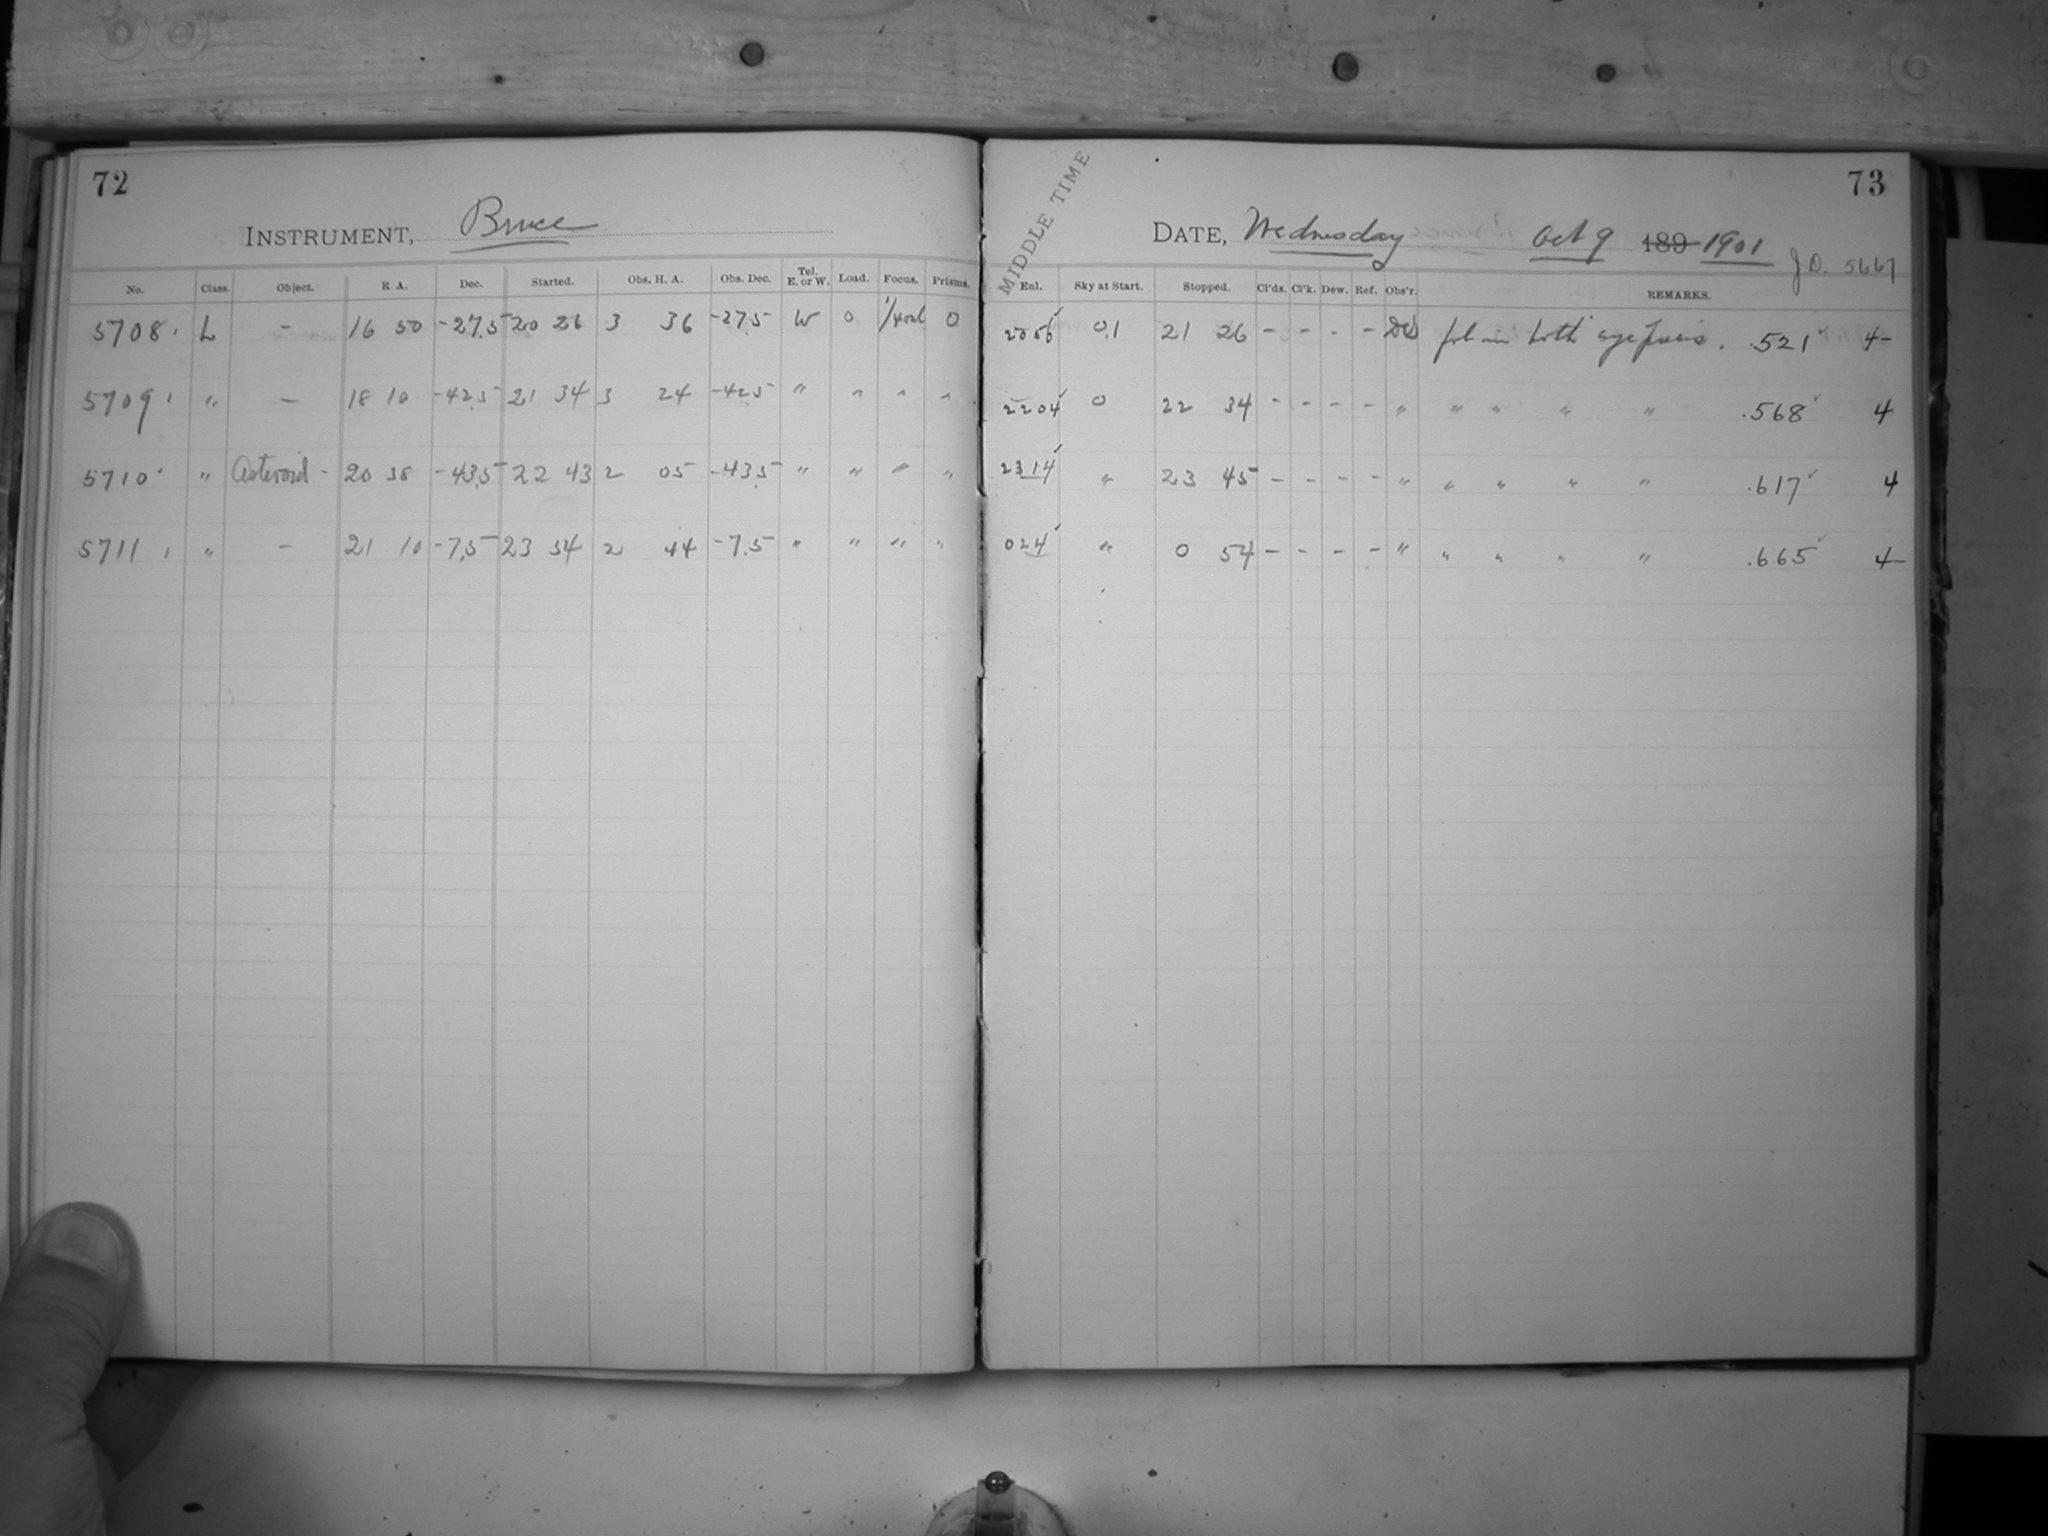 72
INSTRUMENT, Bruce
No. Class. Object. R A. Dec. Started. Obs. H. A. Obs. Dec. Tel. E. or W. Load. Focus. Prisms.
5708 L - 16 50 -27.5 20 26 3 36 -27.5 W 0 0
5709 " - 18 10 -42.5 21 34 3 24 -42.5 " " " "
5710 " Asteroid - 20 38 -43.5 22 43 2 05 -43.5 " " " "
5711 " - 21 10 -7.5 23 54 2 44 -7.5 " " " "
73
MIDDLE TIME
DATE, Wednesday Oct 9 189 1901
J.D. 5667
Enl. Sky at Start. Stopped. Cl'ds. Cl'k. Dew. Ref. Obs'r. REMARKS.
2056 0.1 21 26 - - - - fol in both eyepieces. .521 4-
2204 0 22 34 - - - - " " " " " .568 4
2314 " 23 45 - - - - " " " " " .617 4
024 " 0 54 - - - - " " " " " .665 4-